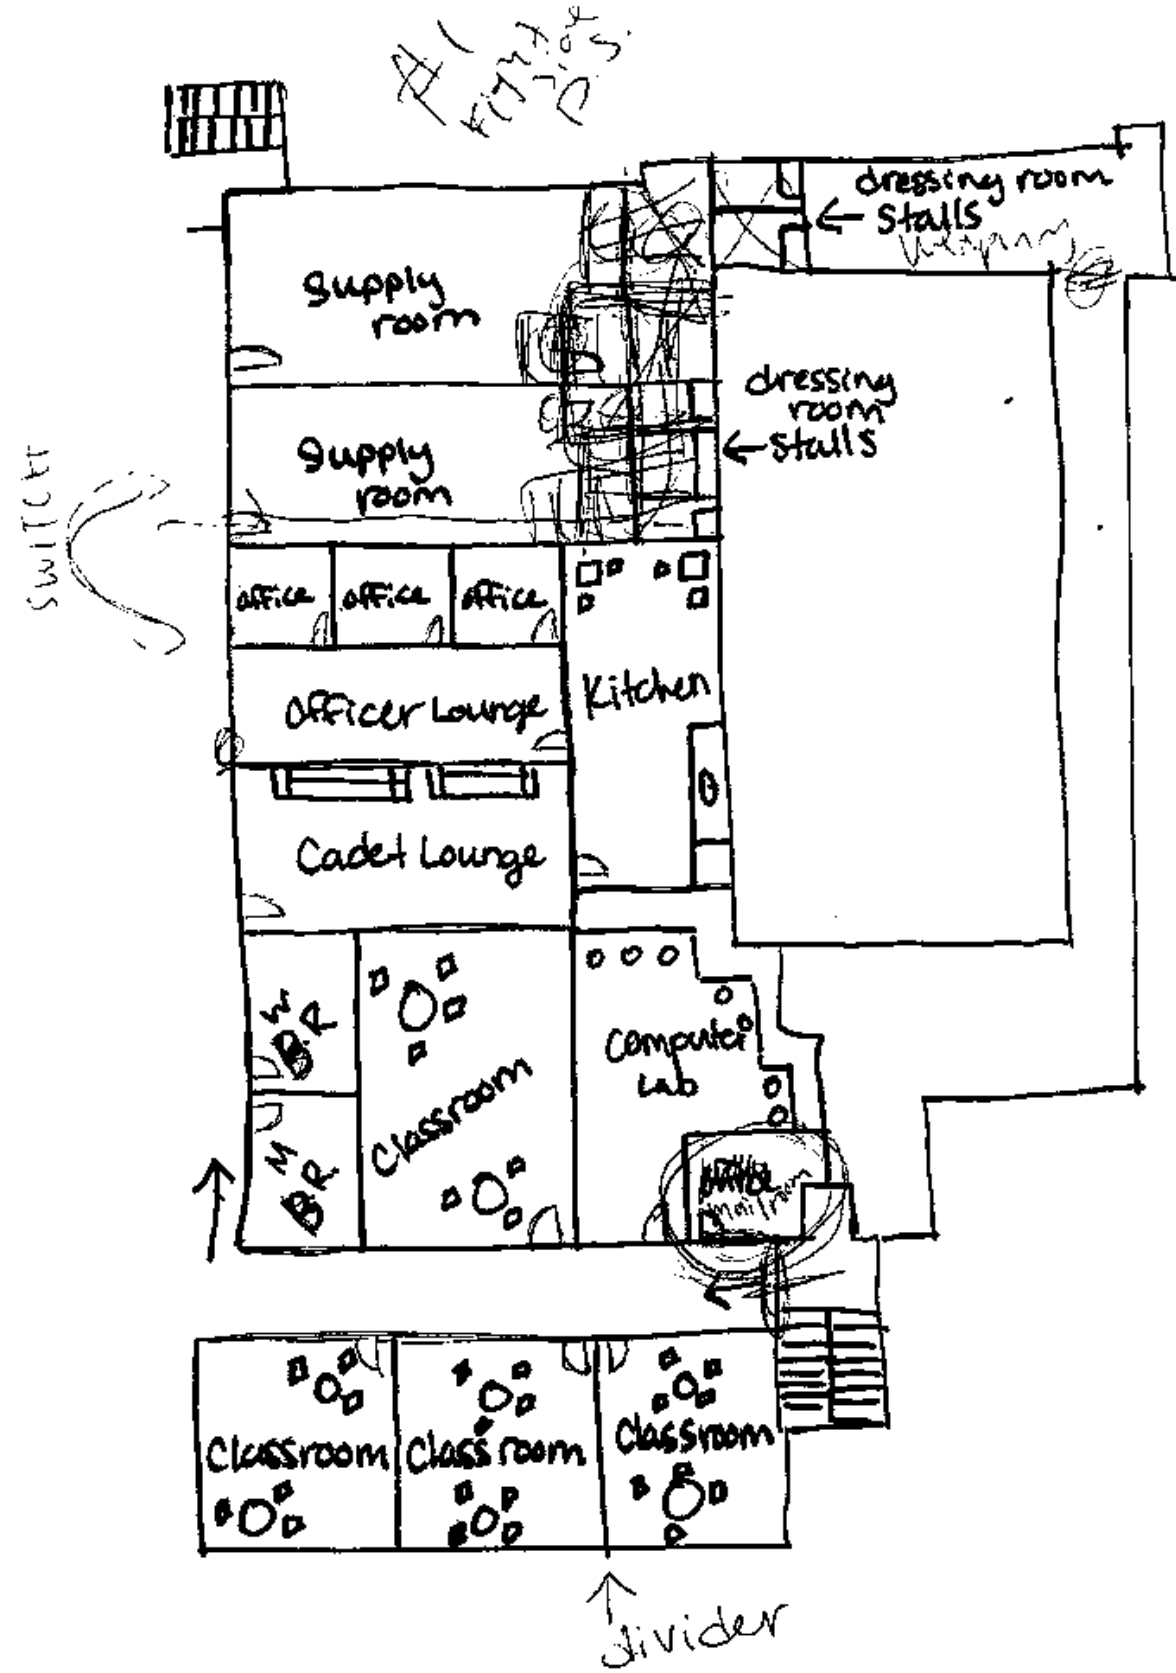 #1
right
side
P.S.
dressing room
stalls
weapons
supply
room
dressing
room
stalls
supply
room
SWITCH
office office office
Officer Lounge
Kitchen
Cadet Lounge
W
B.R
Classroom
Computer
Lab
M
B.R
mailroom
Classroom Classroom Classroom
divider